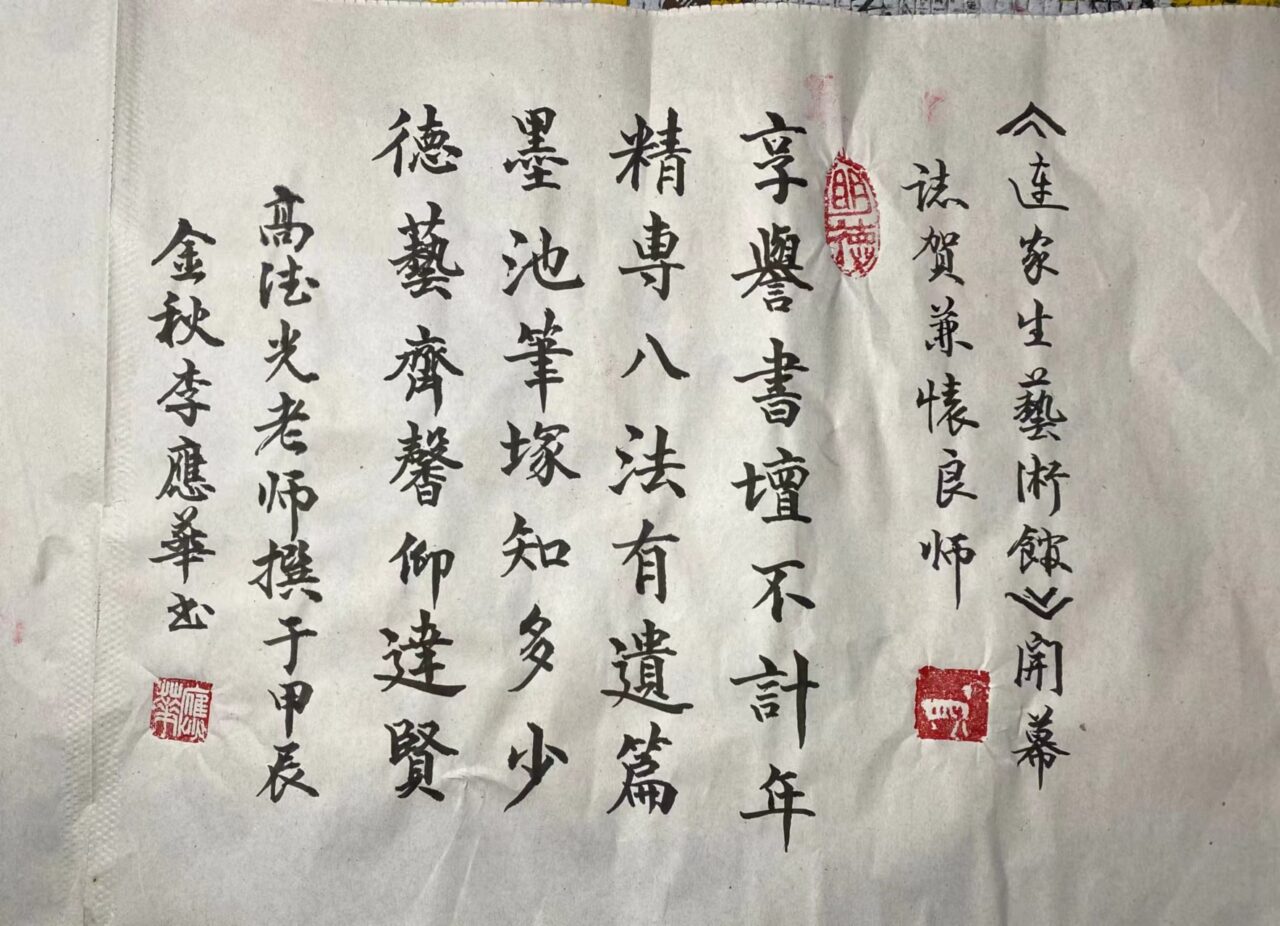 《连家生藝術館》開幕
誌賀兼懷良师
享譽書壇不計年
精專八法有遺篇
墨池筆塚知多少
德藝齊馨仰達賢
高法光老师撰于甲辰
金秋李應華书
明德
應華